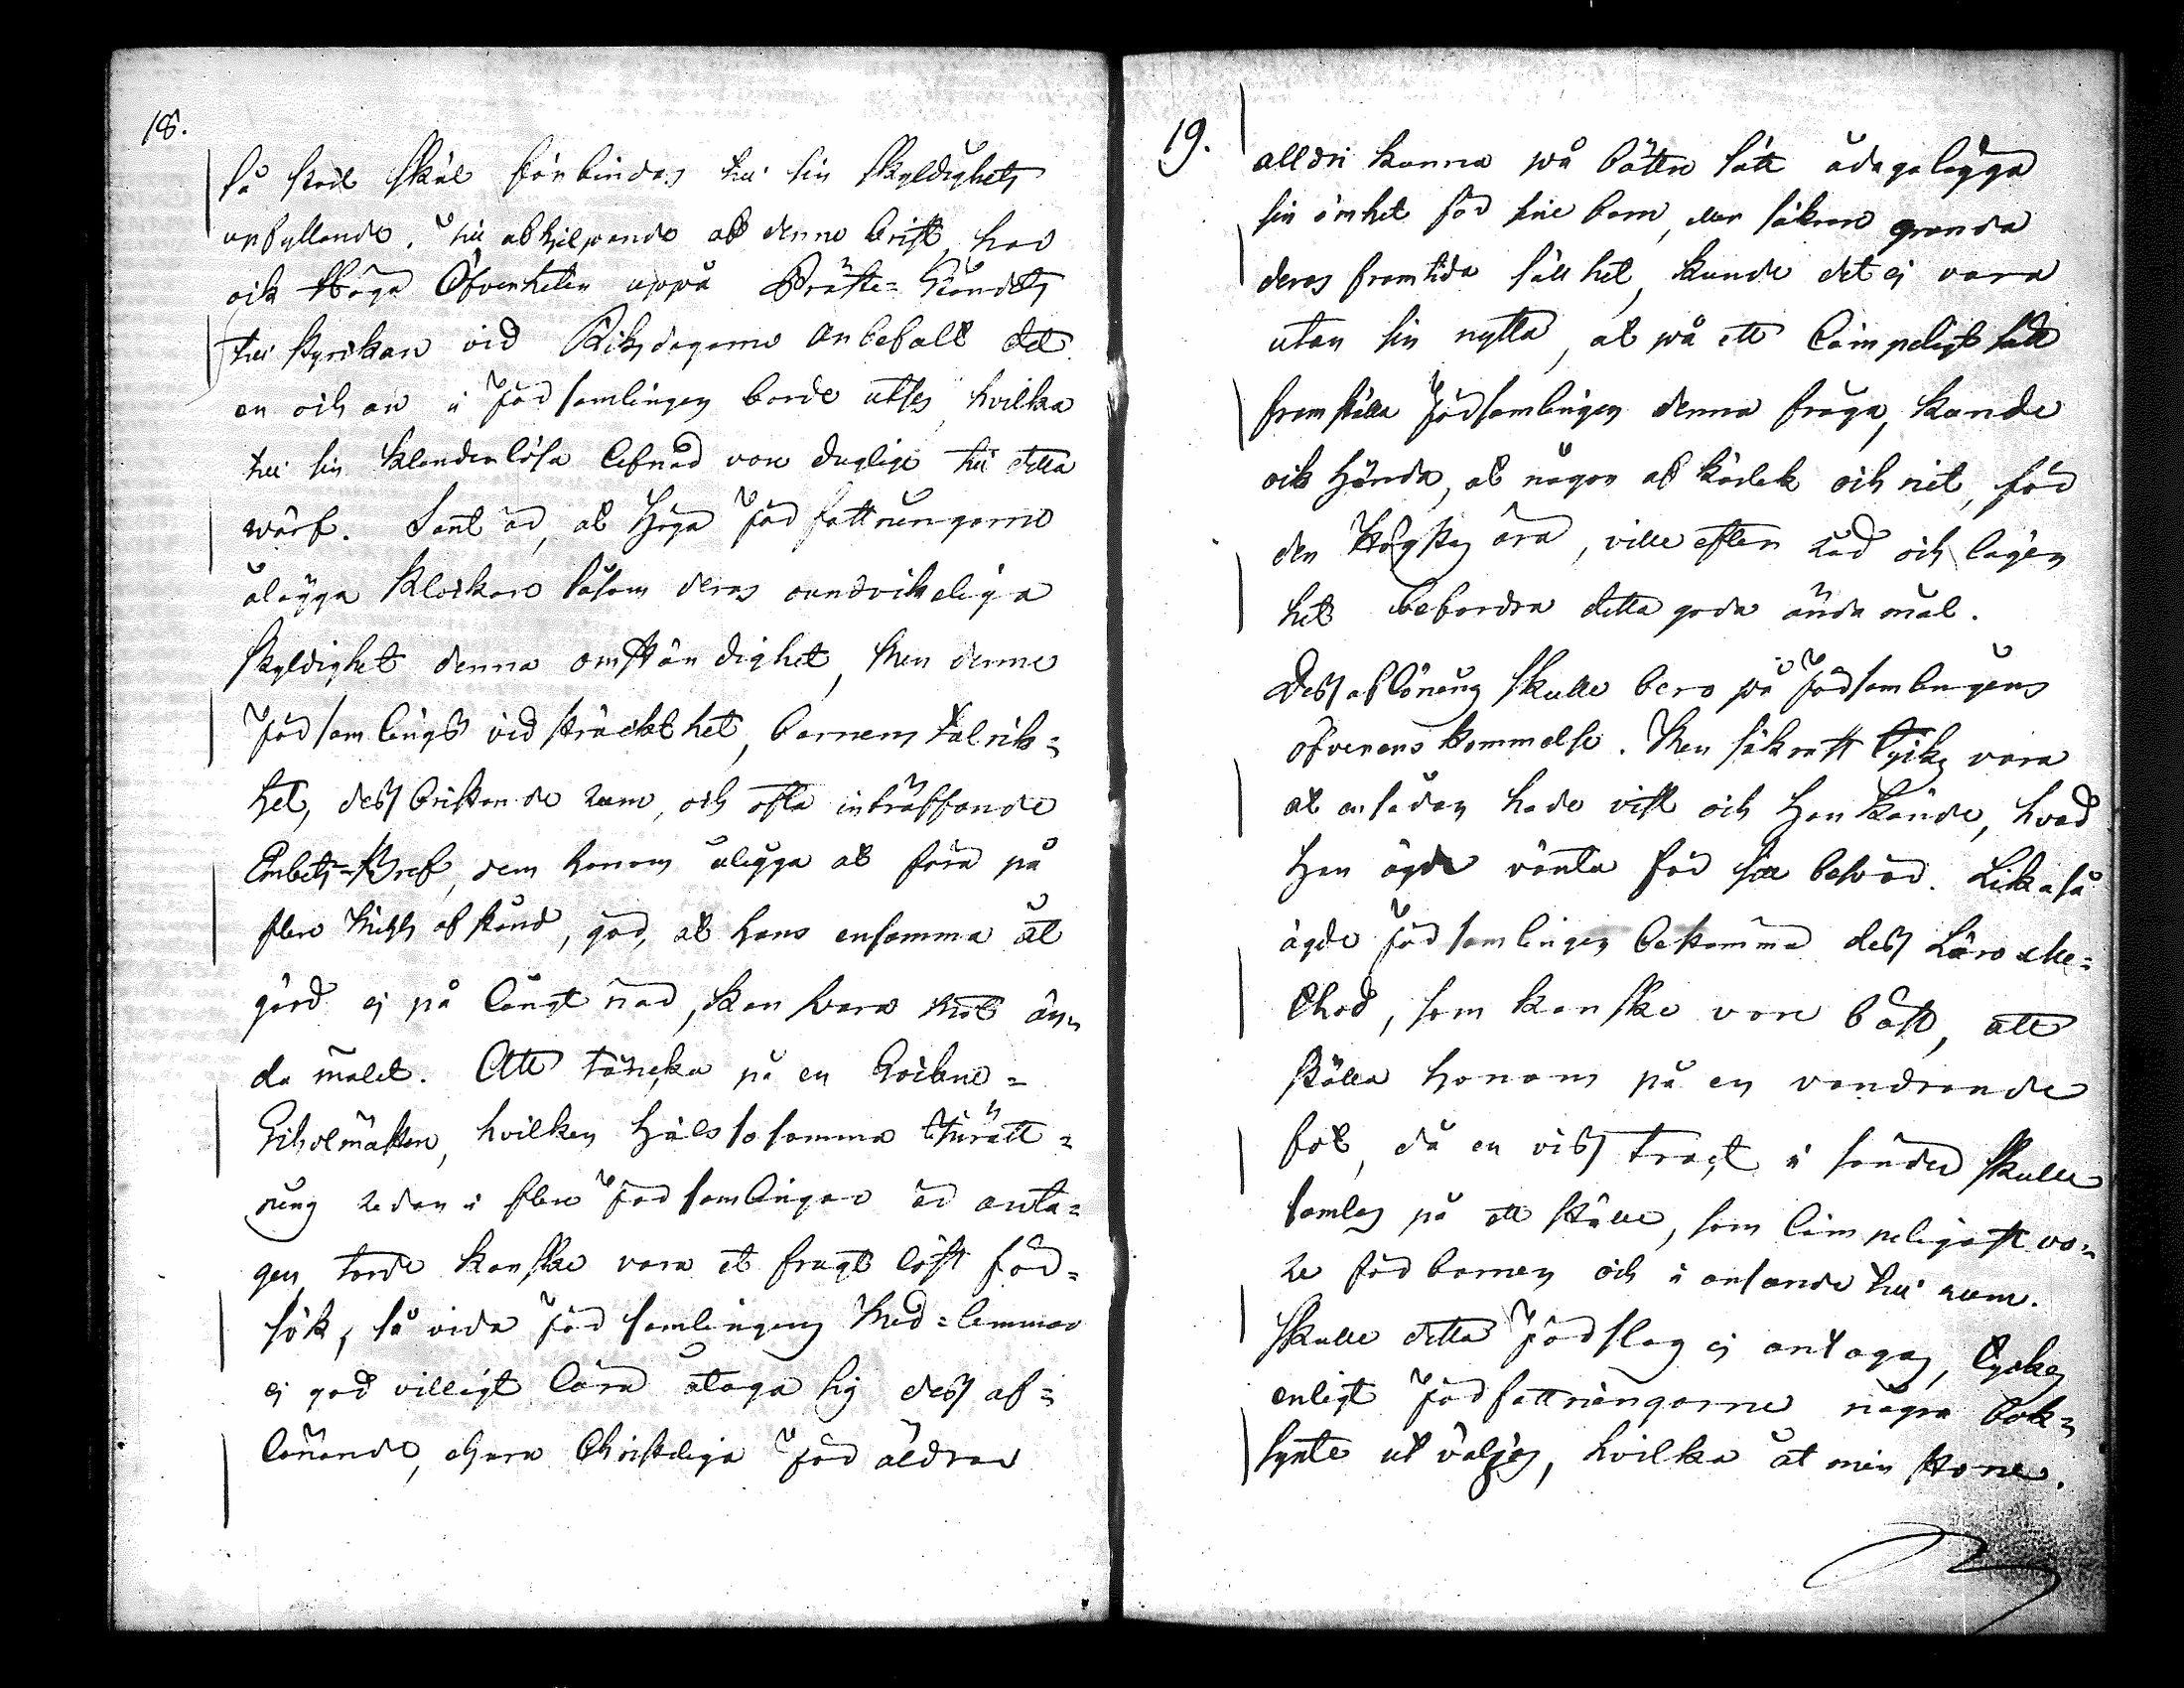 18.
så stort skäl förbindas till sin skyldighets
upfyllande. Till afhjelpande af denne brist har
ock Höga Öfverheten uppå Präste-Ståndets
till styrckan vid Riksdagarne anbefalt det
en och an i Församlingen borde utses, hvilka
till sin klanderlösa lefnad vore duglige till detta
värf. Sant är, at Höga Författningarne
ålägga Klockare såsom deras oundvikeliga
skyldighet denna omständighet, Men denne
Församlings vidsträckthet, barnens talrik-
het, dess bristande rum, och ofta inträffande
Embets-Bref, dem honom åligga at föra på
flere Mihls afstånd, gör, at hans ensamma åt
gärd ej på långt när, kan svara mot än-
damålet. Att täncka på en Sockne-
Scholmästare, hvilken hälsosamma Inrätt-
ning redan i flere Församlingar är anta-
gen, torde kanske vara et fruglöst för-
sök, så vida Församlingens Med-lemmar
ej godvilligt lära åtaga sig dess af-
lönande, ehuru Christeliga Föräldrar
19.
alldri kunna på bättre sätt ådagalägga
sin ömhet för sine barn, eller säkrare grunda
deras framtida sällhet, kunde det ej vara
utan sin nytta, at på ett lämpeligt sätt
framställa Församlingen denna fråga, kunde
ock hända, at någon af kärlek och nit, för
den Högstes ära, ville efter råd och lägen
het befordra detta goda ändamål.
Dess aflöning skulle bero på Församlingens
öfverenskommelse. Men säkrast tycks vara
at en sådan hade vist och Han kände, hvad
Han ägde vänta för sitt besvär. Likaså
ägde Församlingen bestämma dess Läro Me-
thod, som kanske vore bäst, att
ställa honom på en vandrande
fot, då en viss tract i sänder skulle
samlas på ett ställe, som lämpeligast vo-
re för barnen och i anseende till rum.
Skulle detta Förslag ej antagas, tycks
enligt Författningarne några bok-
synte utväljas, hvilka åt minstone.